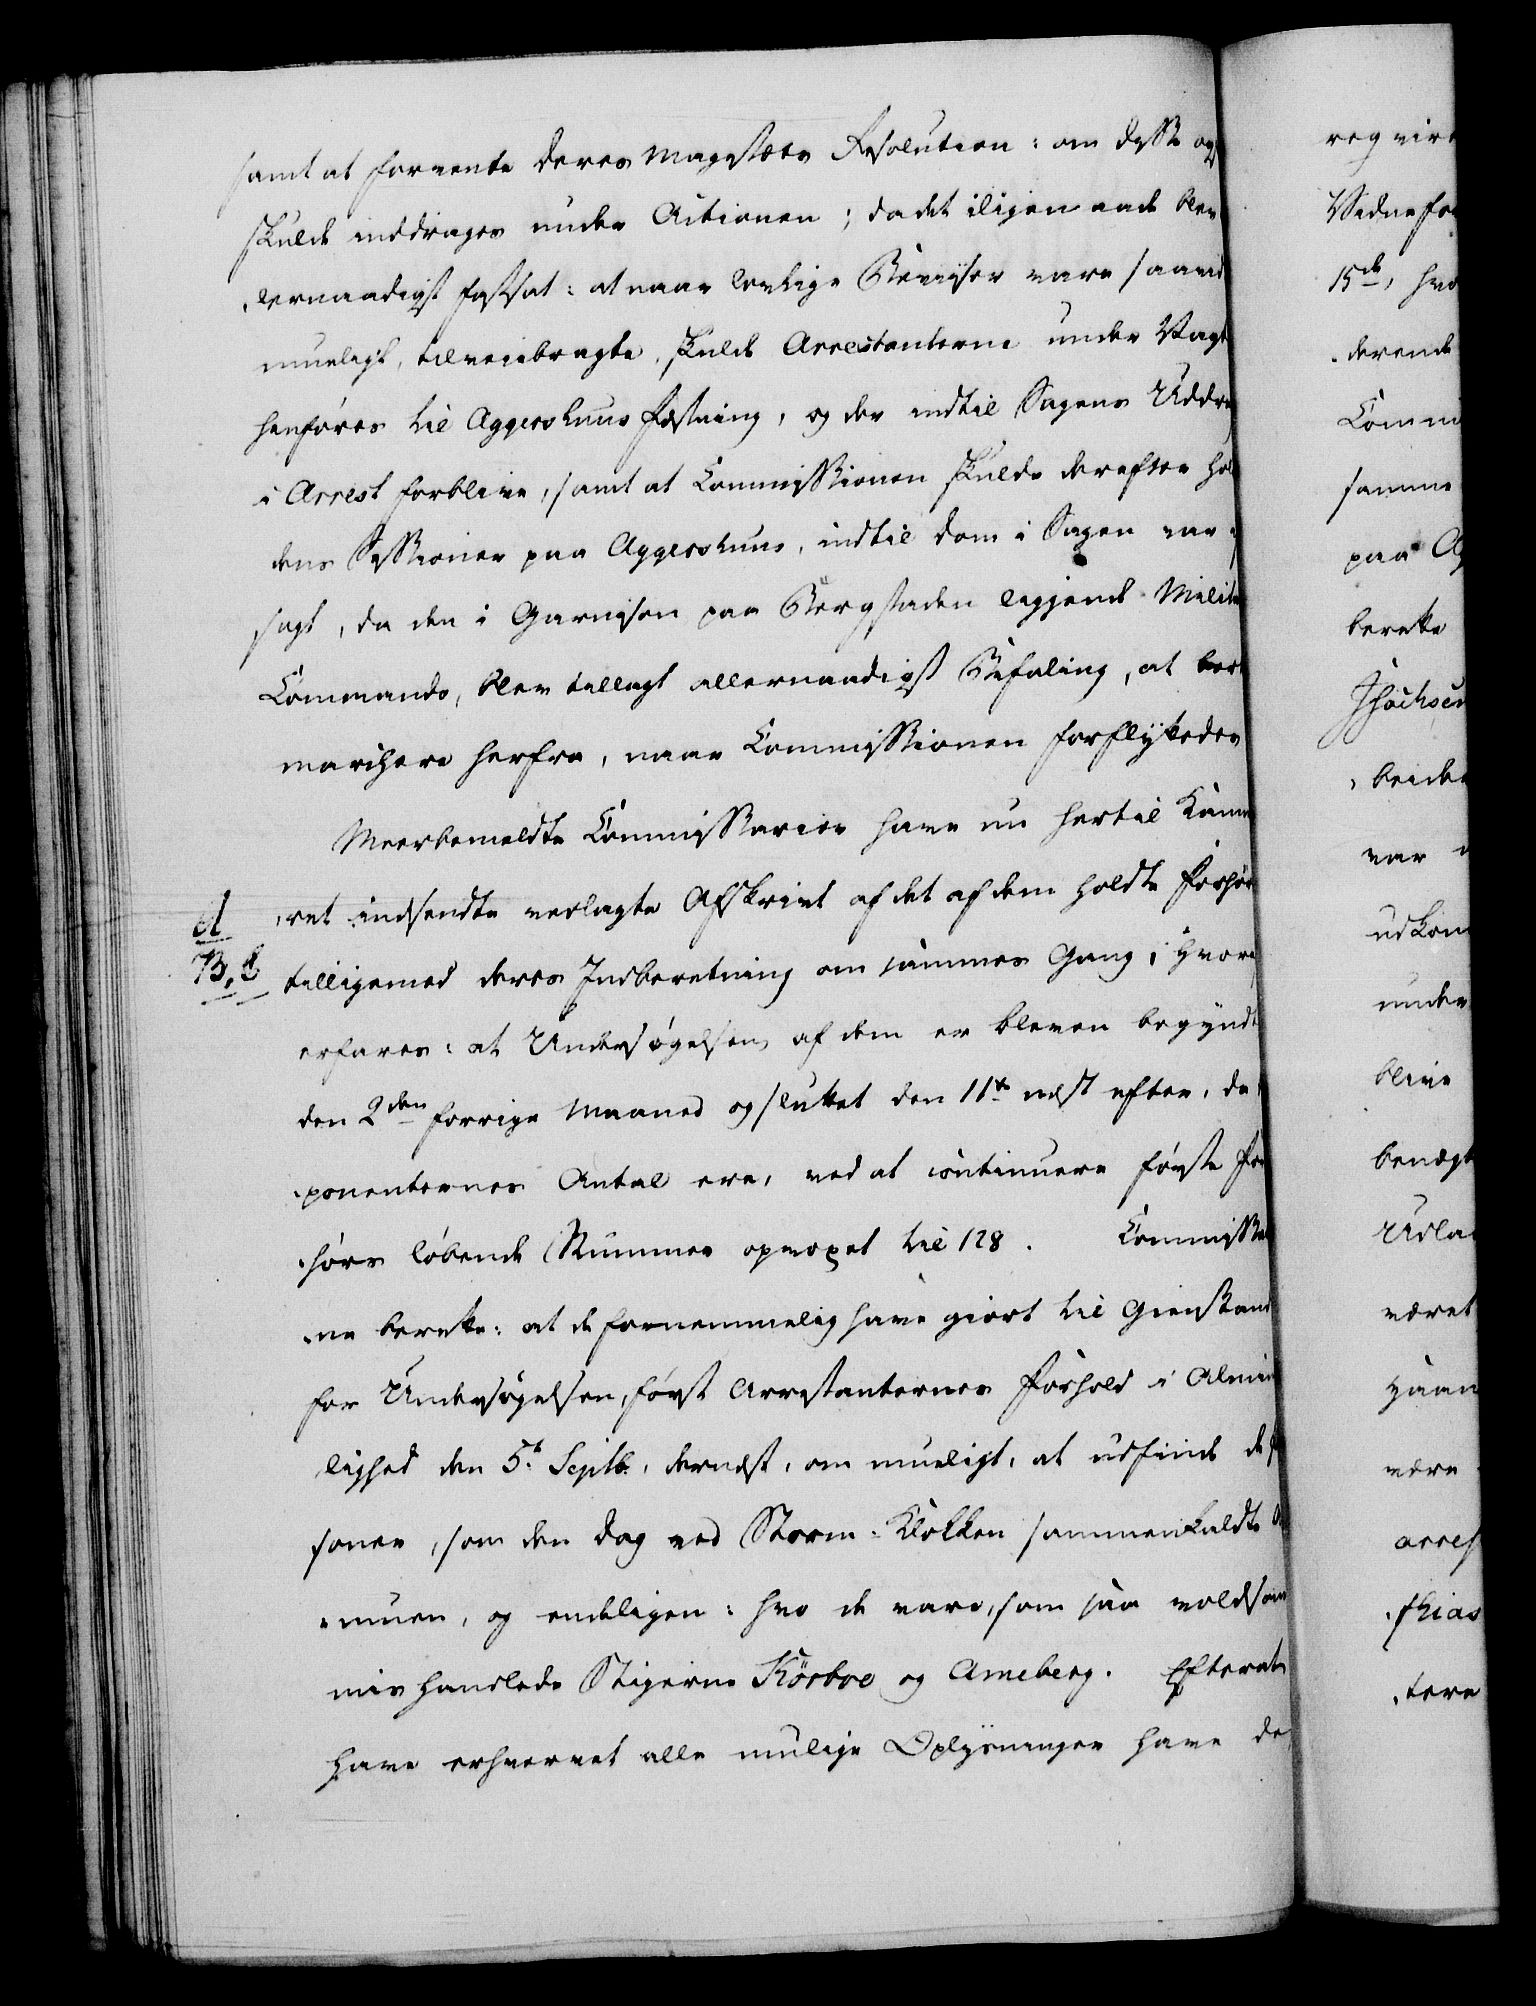 samt at forvente Deres Majestæts Resolution: om disse og
skulde inddrages under Actionen; da det iligemaade blev
lernaadigst fastsat: at naar lovlige Beviser vare saavid
mueligt, tilveiebragte, skulde Arrestanterne under Vagt
henføres til Aggershuus Fæstning, og der indtil Sagens Uddra
i Arrest forblive, samt at Commissionen skulde derefter hol
dens Sessioner paa Aggershuus, indtil Dom i Sagen var
sagt, da den i Garnison paa Bergstaden liggende Milit
Commando, blev tillagt allernaadigst Befaling, at bort
marchere herfra, naar Commissionen forflyttedes
Meerbemeldte Commissarier have nu hertil Kamm
d
ret indsendte verlagte Afskrivt af det af dem holdte Forhør
B. C
tilligemed deres Indberetning om sammes Gang; hvor
erfares: at Undersøgelsen af dem er bleven begyndt
den 2den forrige Maaned og sluttet den 11te næst efter, de
ponenternes Antal ere, ved at continuere første For
hørs løbende Nummer opvoxet til 128. Commissa
ne berette: at de fornemmelig have giort til Gienstand
for Undersøgelsen, først Arrestanternes Forhold i Almin
lighed den 5t Septb. dernæst, om mueligt, at udfinde de
soner, som den Dag ved Storm-Klokken sammenkaldte Al
muen, og endeligen: hvo de vare, som saa voldsom
mishandlede Stigerne Körboe og Arneberg. Efterat
have erhvervet alle mulige Oplysninger have de
reqvire
Vidnefor
15de, hvo
derende
Comm
samme
paa Ag
berette
var
udkom
under
blive
benægt
Udla
været
være
arres
thias
tere